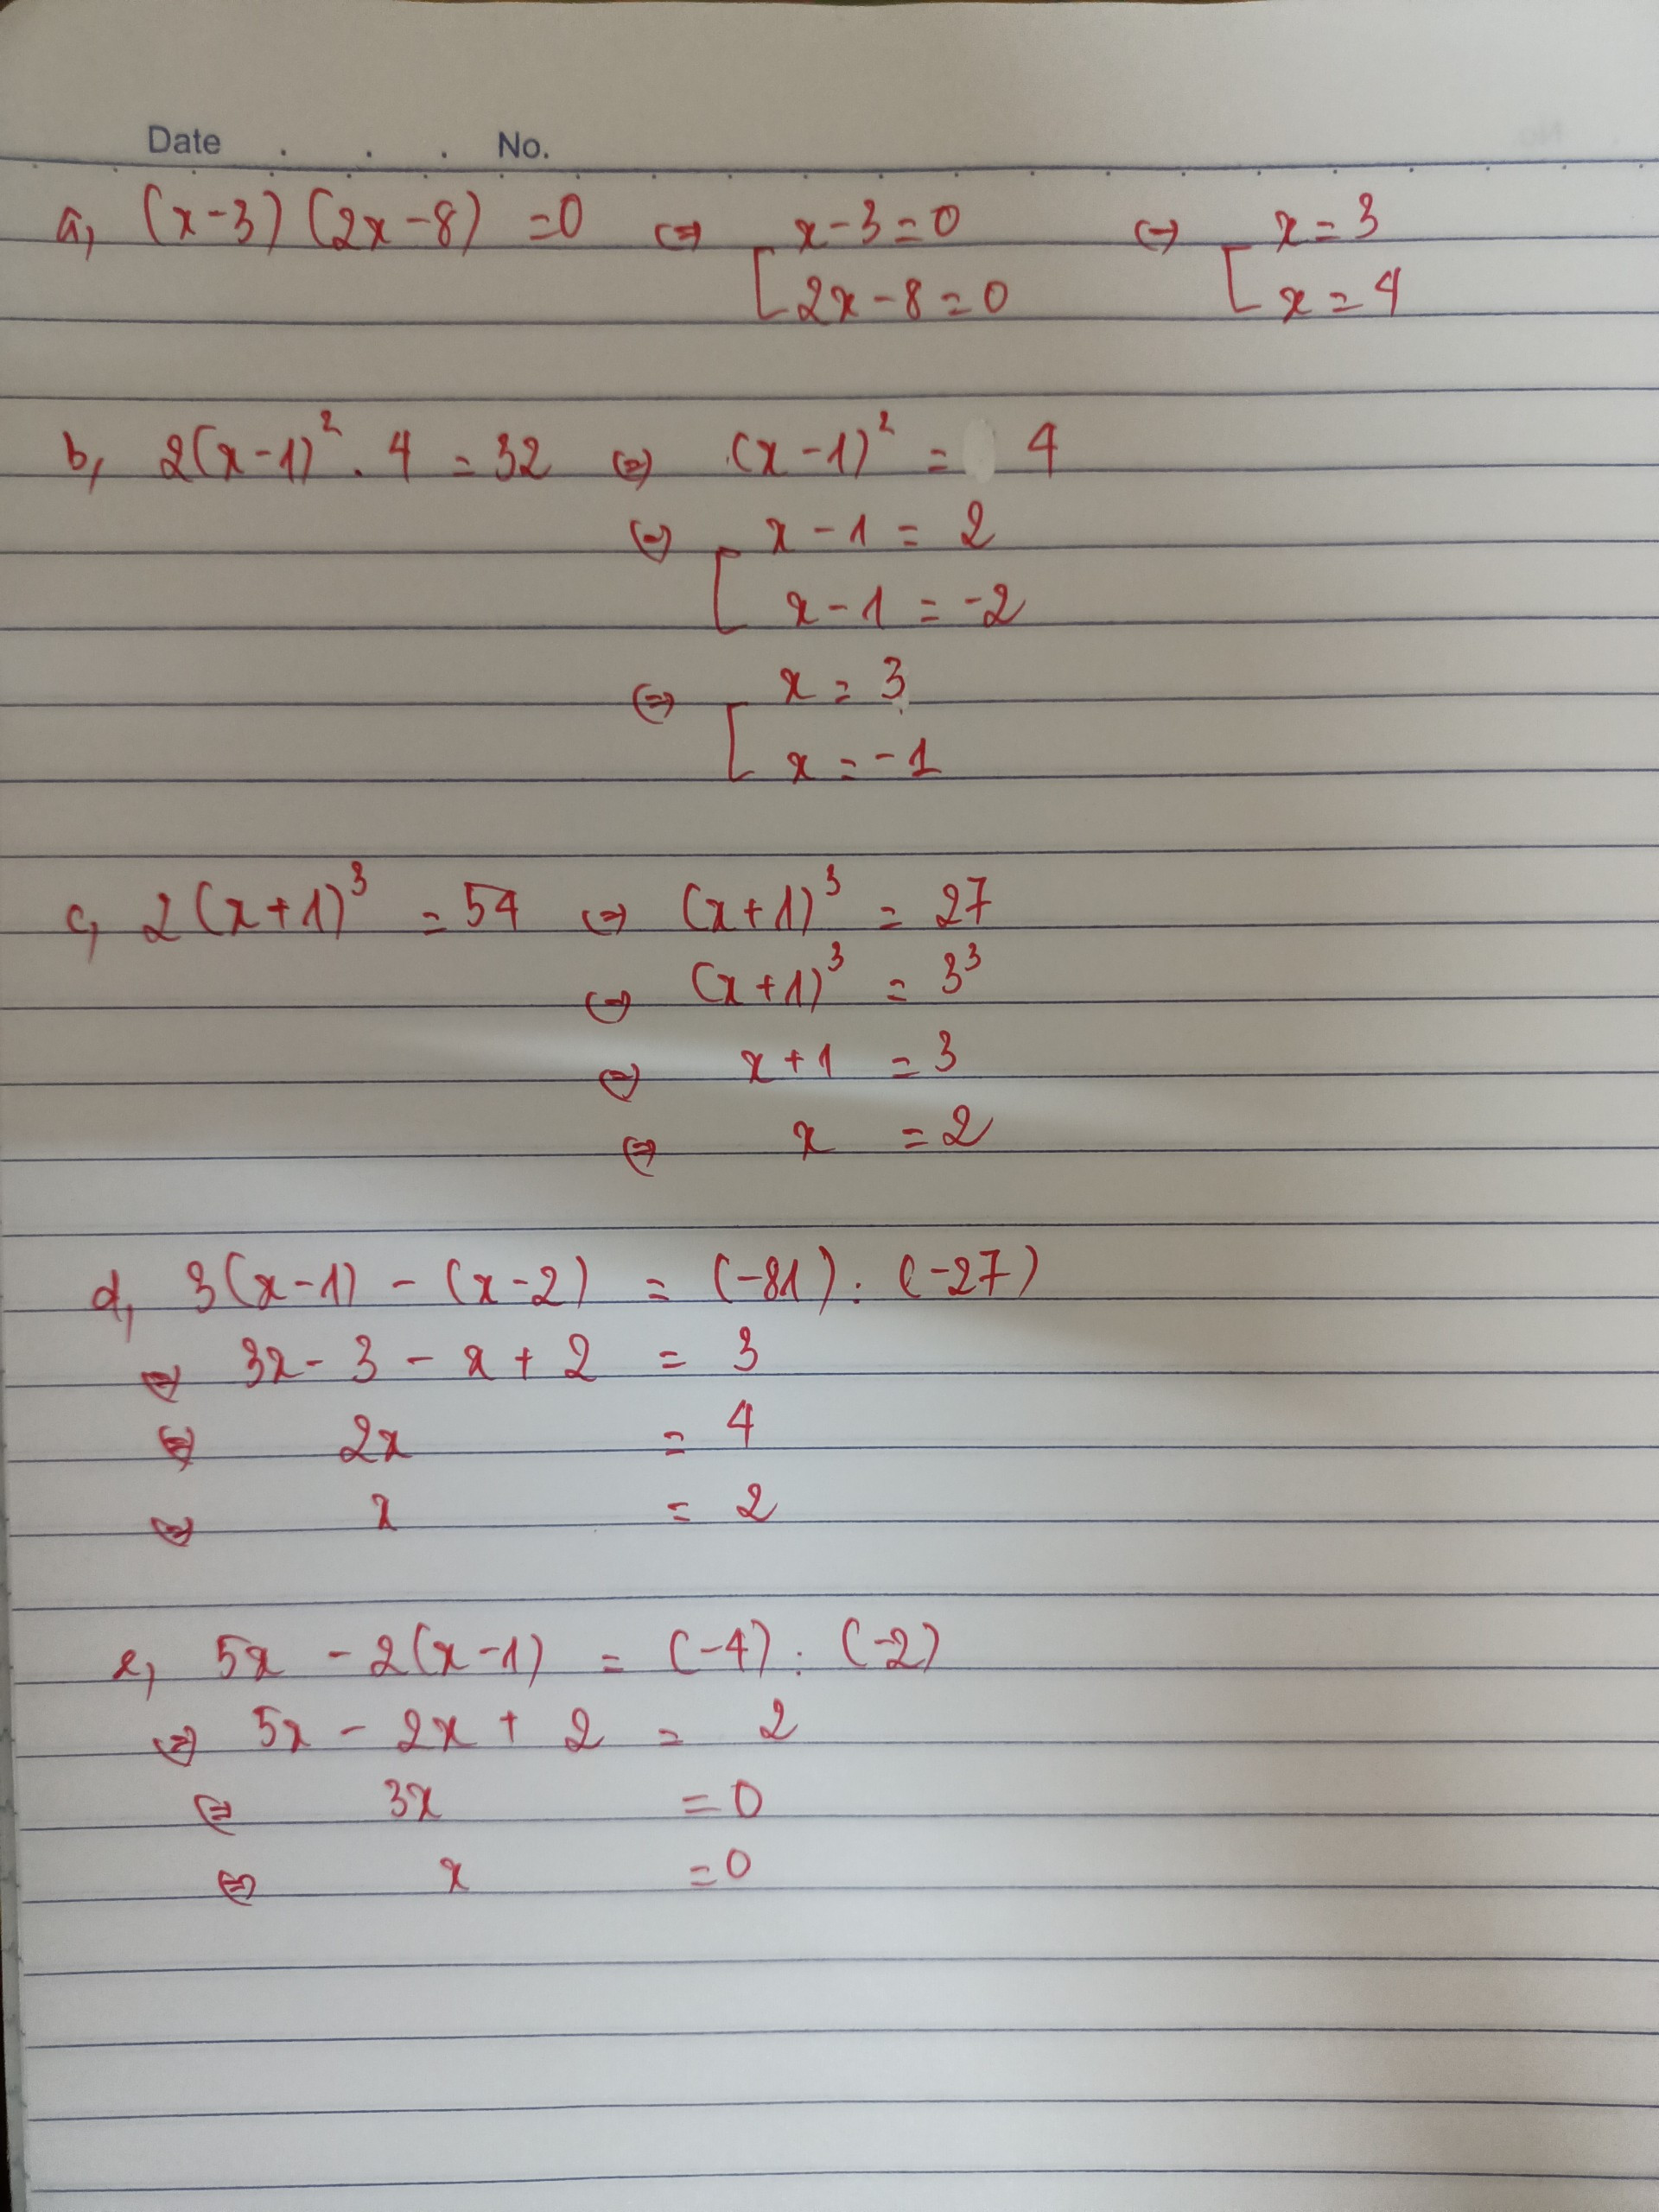 Date . . . No.
a, (x-3)(2x-8) =0 <=> [ x-3=0 <=> [ x=3
2x-8=0 x=4
b, 2(x-1)² . 4 = 32 <=> (x-1)² = 4
<=> [ x-1 = 2
x-1 = -2
<=> [ x = 3
x = -1
c, 2(x+1)³ = 54 <=> (x+1)³ = 27
<=> (x+1)³ = 3³
<=> x+1 = 3
<=> x = 2
d, 3(x-1) - (x-2) = (-81) : (-27)
<=> 3x - 3 - x + 2 = 3
<=> 2x = 4
<=> x = 2
e, 5x - 2(x-1) = (-4) : (-2)
<=> 5x - 2x + 2 = 2
<=> 3x = 0
<=> x = 0